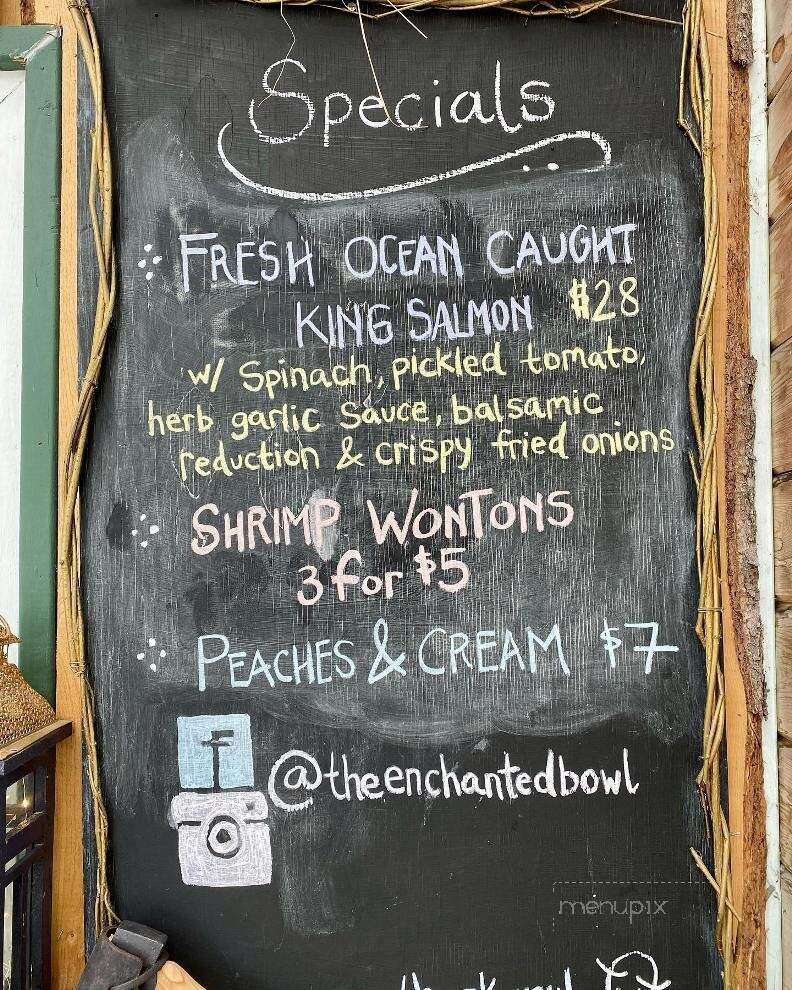 Specials
FRESH OCEAN CAUGHT
KING SALMON $28
w/ Spinach, pickled tomato,
herb garlic Sauce, balsamic
reduction & crispy fried onions
SHRIMP WONTONS
3 for $5
PEACHES & CREAM $7
f
@theenchantedbowl
menupix